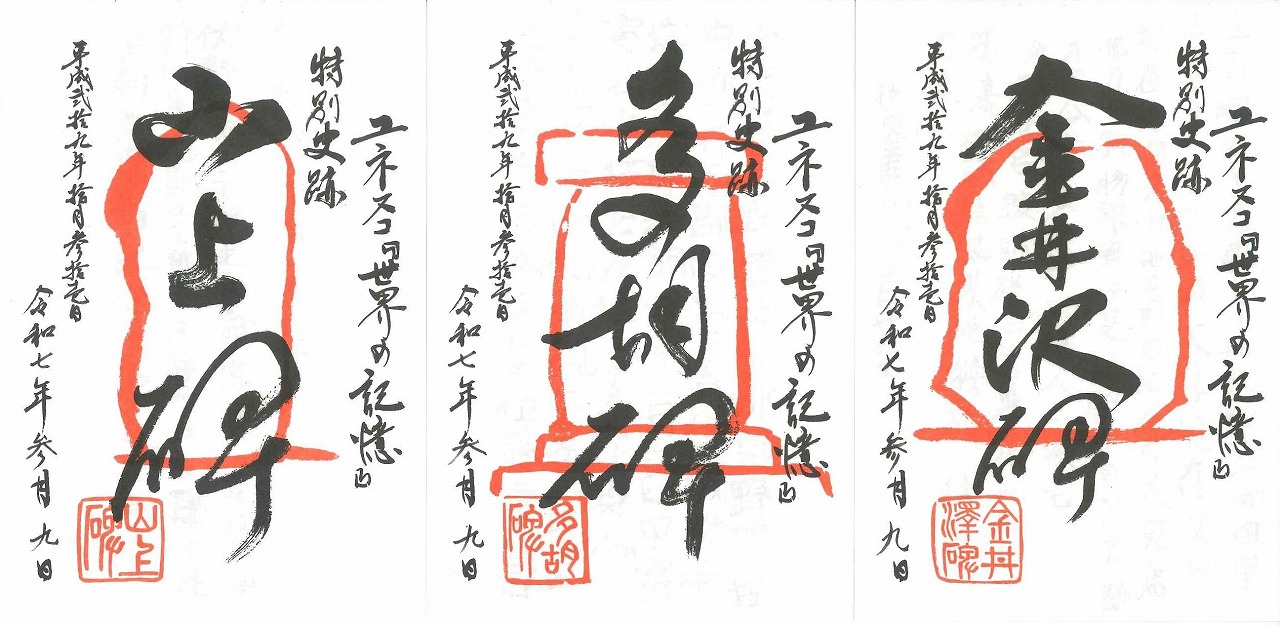 ユネスコ「世界の記憶」
特別史跡
山上碑
平成弐拾九年拾月参拾壱日
令和七年参月九日
山上碑
ユネスコ「世界の記憶」
特別史跡
多胡碑
平成弐拾九年拾月参拾壱日
令和七年参月九日
多胡碑
ユネスコ「世界の記憶」
特別史跡
金井沢碑
平成弐拾九年拾月参拾壱日
令和七年参月九日
金井澤碑